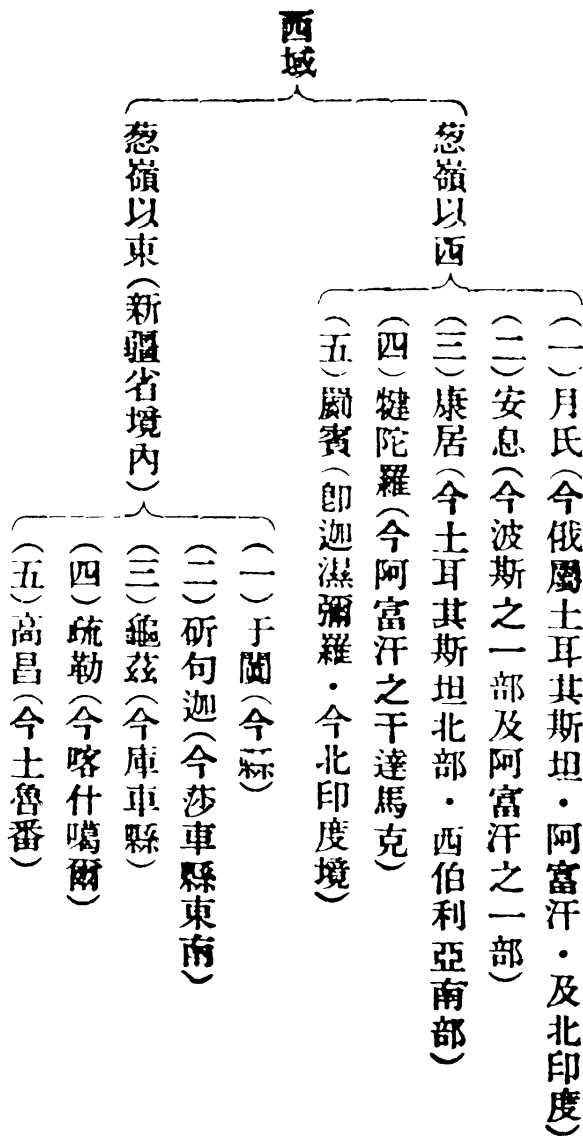 西域
葱嶺以西
(一)月氏(今俄屬土耳其斯坦・阿富汗・及北印度)
(二)安息(今波斯之一部及阿富汗之一部)
(三)康居(今土耳其斯坦北部・西伯利亞南部)
(四)犍陀羅(今阿富汗之干達馬克)
(五)罽賓(卽迦濕彌羅・今北印度境)
葱嶺以東(新疆省境內)
(一)于闐(今縣)
(二)斫句迦(今莎車縣東南)
(三)龜茲(今庫車縣)
(四)疏勒(今喀什噶爾)
(五)高昌(今土魯番)